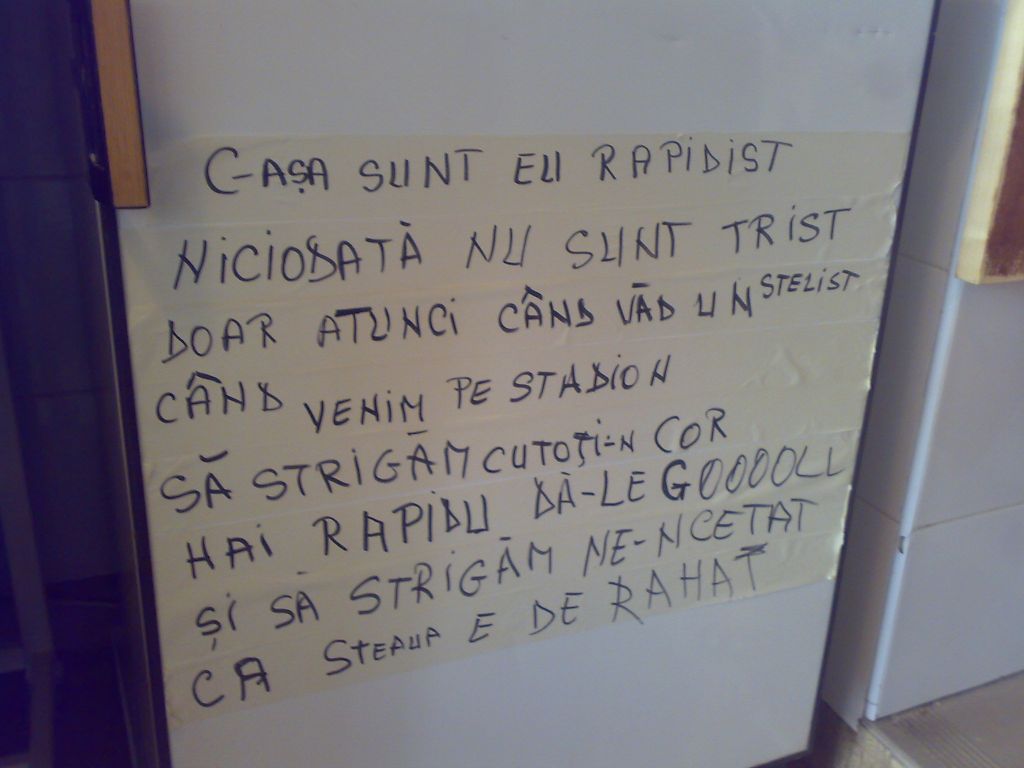 C-AȘA SUNT EU RAPIDIST
NICIODATĂ NU SUNT TRIST
DOAR ATUNCI CÂND VĂD UN STELIST
CÂND VENIM PE STADION
SĂ STRIGĂM CU TOȚI-N COR
HAI RAPIDU DĂ-LE GOOOOLL
ȘI SĂ STRIGĂM NE-NCETAT
CA STEAUA E DE RAHAT